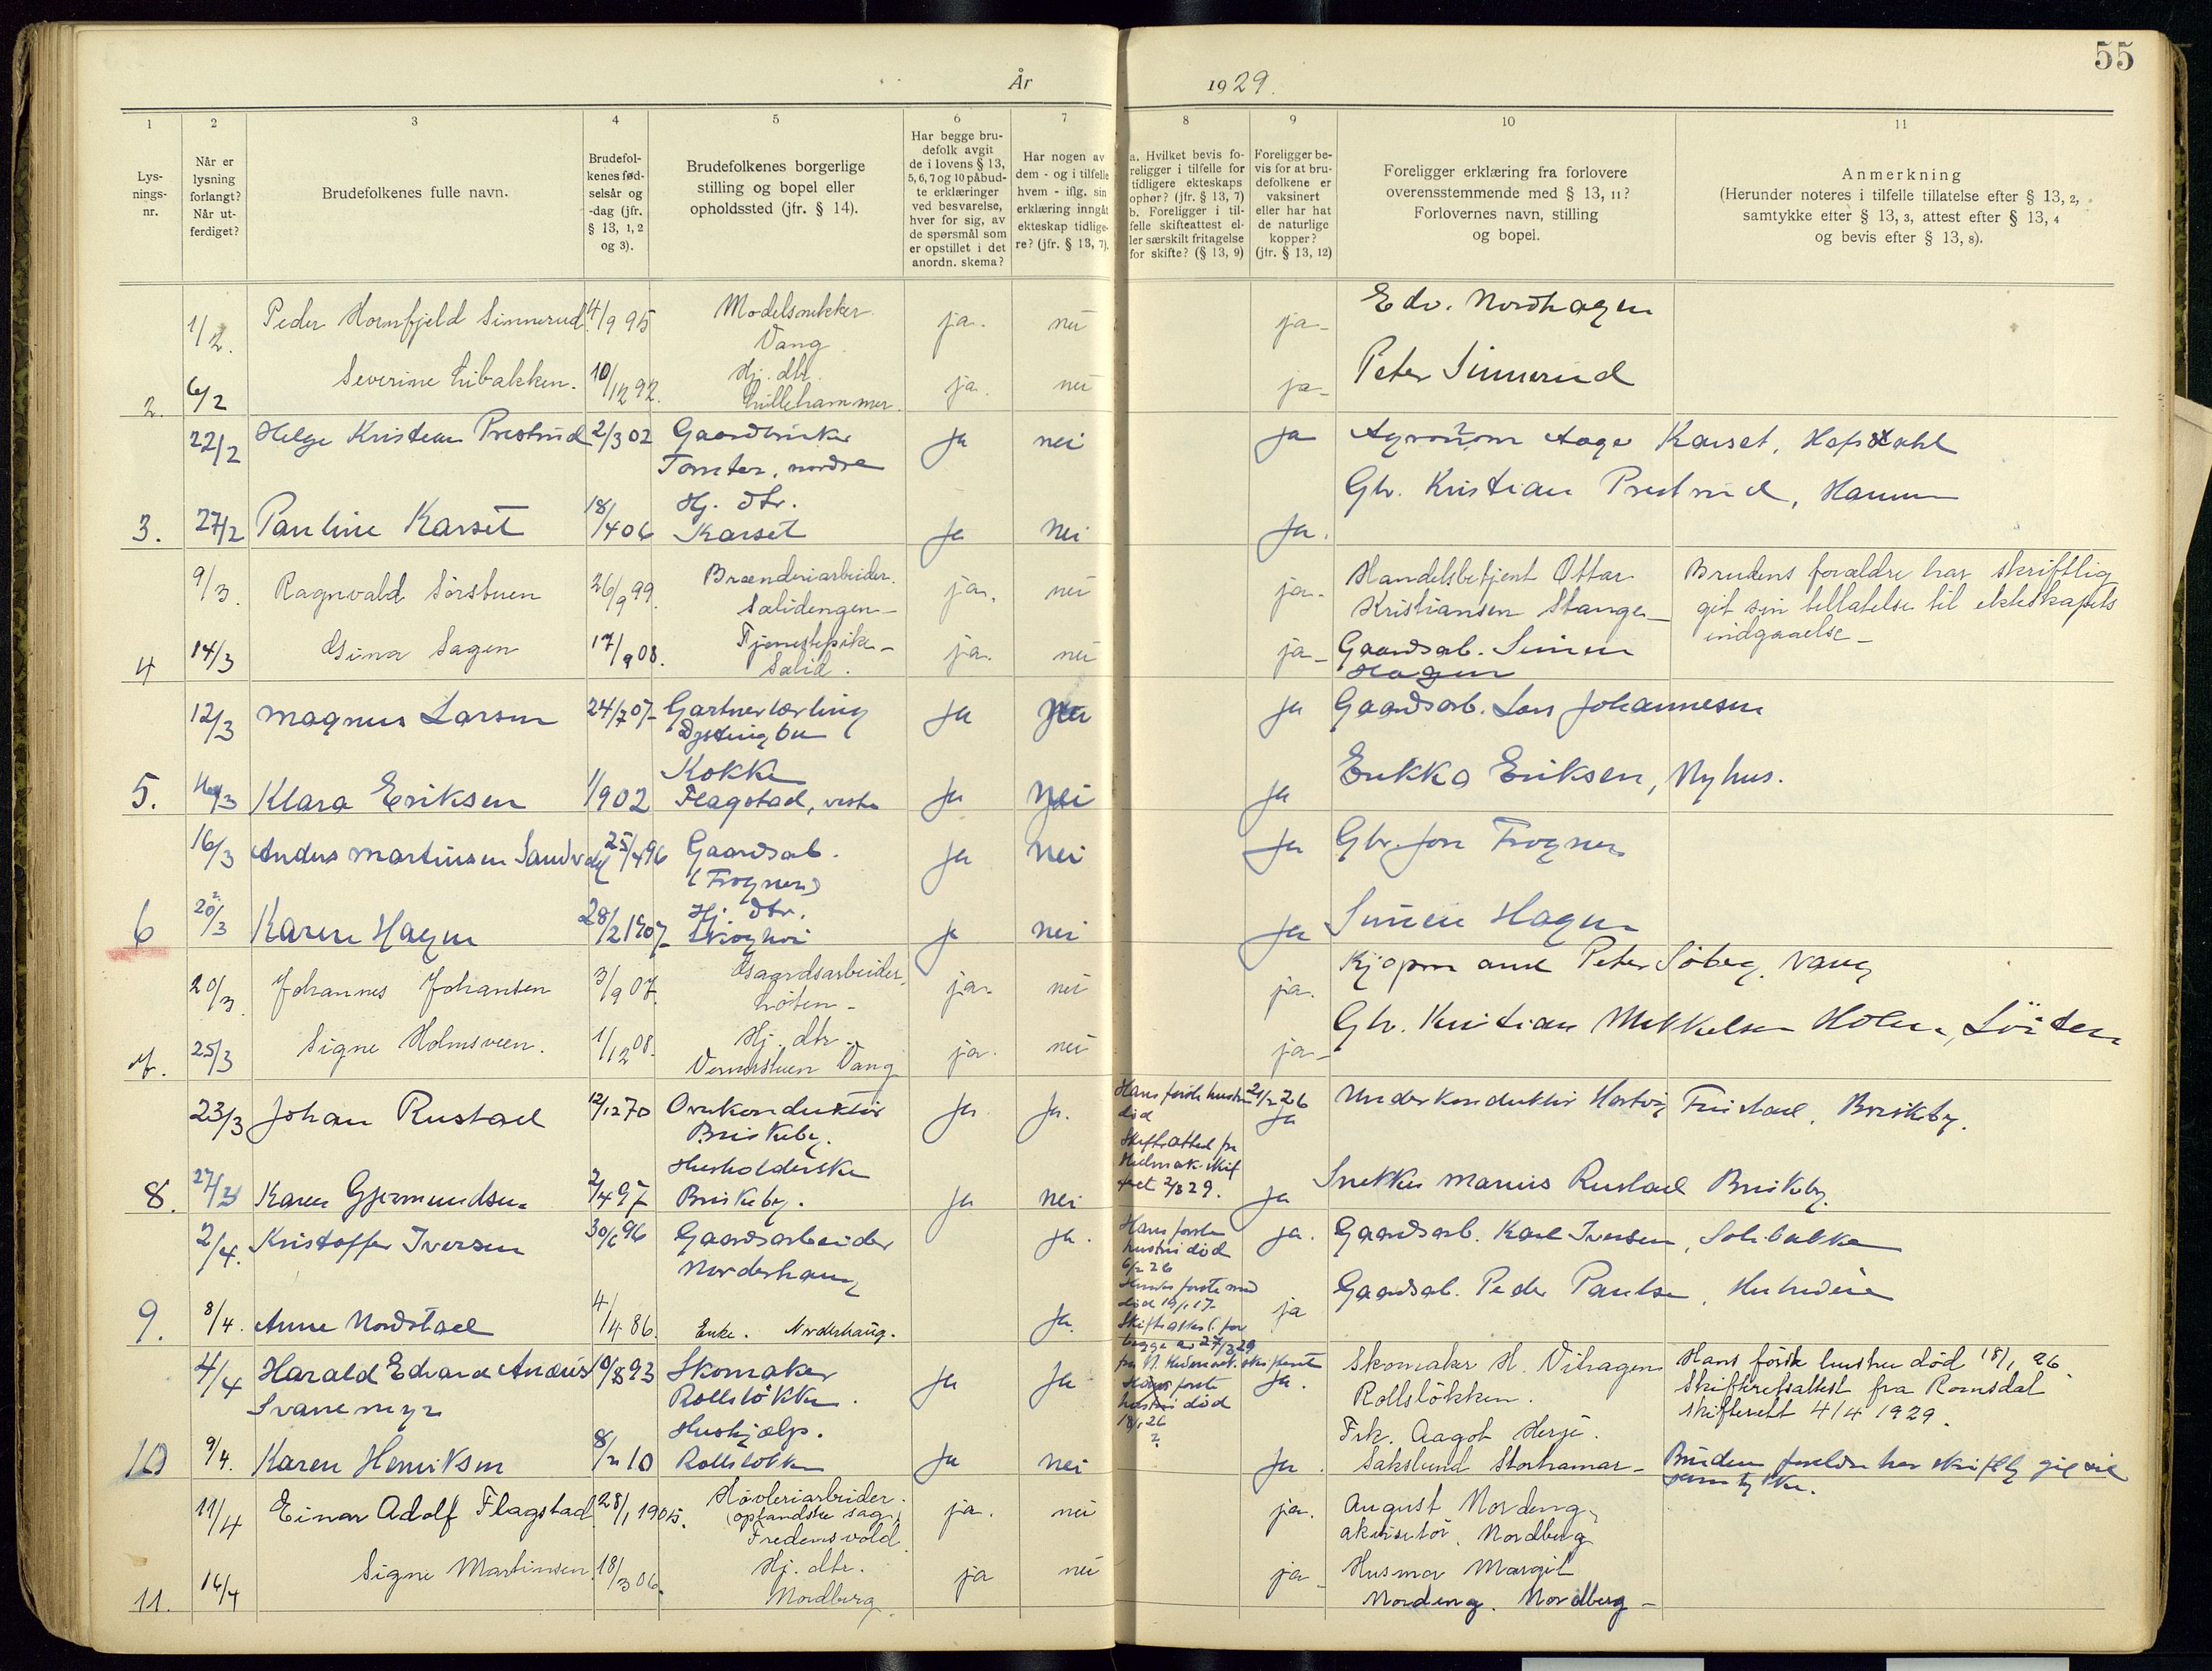 55
År 1929.
1 2 3 4 5 6 7 8 9 10 11
Lys-
nings-
nr.
Når er
lysning
forlangt?
Når ut-
ferdiget?
Brudefolkenes fulle navn.
Brudefol-
kenes fød-
selsår og
-dag (jfr.
§ 13, 1, 2
og 3).
Brudefolkenes borgerlige
stilling og bopel eller
opholdssted (jfr. § 14).
Har begge bru-
defolk avgit
de i lovens § 13,
5, 6, 7 og 10 påbud-
te erklæringer
ved besvarelse,
hver for sig, av
de spørsmål som
er opstillet i det
anordn. skema?
Har nogen av
dem - og i tilfelle
hvem - iflg. sin
erklæring inngåt
ekteskap tidlige-
re? (jfr. § 13, 7).
a. Hvilket bevis fo-
religger i tilfelle for
tidligere ekteskaps
ophør? (jfr. § 13, 7)
b. Foreligger i til-
felle skifteattest el-
ler særskilt fritagelse
for skifte? (§ 13, 9)
Foreligger be-
vis for at bru-
defolkene er
vaksinert
eller har hat
de naturlige
kopper?
(jfr. § 13, 12)
Foreligger erklæring fra forlovere
overensstemmende med § 13, 11?
Forlovernes navn, stilling
og bopel.
Anmerkning
(Herunder noteres i tilfelle tillatelse efter § 13, 2,
samtykke efter § 13, 3, attest efter § 13, 4
og bevis efter § 13, 8).
1/2. Peder Hornfjeld Sinnerud 4/9 95 Modelsnekker ja. nei ja- Edv. Nordhagen
Vang
2. 6/2 Severine Libakken. 10/12 92. Hj. dtr. ja. nei ja- Peter Sinnerud
Lillehammer.
22/2 Helge Kristian Prestrud 2/3 02 Gaardbruker ja nei ja Agronom Aage Karset, Hofsdahl
Tomter, nordre
Gbr. Kristian Prestrud, Hamm
3. 27/2 Pauline Karset 18/4 06 Hj. dtr. ja nei ja.
Karset
9/3. Ragnvald Sørstuen 26/9 99. Brænderiarbeider. ja. nei ja- Handelsbetjent Ottar Brudens forældre har skriftlig
Sælidengen- Kristiansen Stange- git sin tillatelse til ekteskapets
indgaaelse-
4 14/3 Gina Hagen 17/9 08. Tjenestepike- ja. nei ja- Gaardsarb. Simen
Sælid. Hagen
12/3 Magnus Larsen 24/7 07- Gartnerlærling ja nei ja Gaardsarb. Lars Johannesen
Dystingbu
5. 16/3 Klara Eriksen 1/9 02 Kokke ja nei ja Erikka Eriksen, Nyhus.
Flagstad, vestre
16/3 Anders Martinsen Sandvold 25/4 96 Gaardsarb. ja nei ja Gbr. Jon Frogner
(Frogner)
6 20/3 Karen Hagen 28/2 1907- Hj. dtr. ja nei ja Simen Hagen
Skoghei
20/3. Johannes Johansen 3/9 07. Gaardsarbeider, ja- nei ja. Kjøpmann Peter Søberg. Vang
Løten-
7. 25/3 Signe Holmsveen. 1/12 08. Hj. dtr. ja. nei ja- Gbr. Kristian Mikkelsen Holm, Löiten
Vennestuen Vang
23/3 Johan Rustad 12/12 70 Overkonduktør ja ja. Hans første hustru 21/2 26 ja Underkonduktør Hartvig Fristad, Briskeby.
Briskeby. død
Skifteattest fra
Hedmark skif
teret 2/3 29.
8. 27/3 Karen Gjermundsen 2/4 97 Husholderske ja nei ja Snekker Marius Rustad Briskeby.
Briskeby.
2/4. Kristoffer Iversen 30/6 96 Gaardsarbeider ja. Hans første ja. Gaardsarb. Karl Iversen, Solibakke
Norderhaug hustru død
6/2 26
9. 8/4. Anne Nordstad 4/4 86. Enke. Norderhaug. ja. Hendes første mand ja Gaardsarb. Peder Paulsen,
død 19/1 17-
Skifteattest for
begge av 27/3 29
4/4 Harald Edvard Andreas 10/8 93 Skomaker ja ja Hans første ja. Skomaker H. Vihagen Hans første hustru død 18/1 26.
Svanemyr Rollsløkken. hustru død Rollsløkken. Skifteretsattest fra Romsdal
18/1 26 skifterett 4/4 1929.
?
10 9/4. Karen Henriksen 8/2 10 Hushjælp. ja nei ja. Frk. Aagot Herje. Brudens foreldre har skriftlig git sit
Rollsløkken Sakslund Storhamar- samtykke.
11/4 Einar Adolf Flagstad 28/1 1905. Høvleriarbeider. ja. nei ja. August Nordeng,
(oplandske sag) akkvisitør, Nordberg
Fredensvold
11. 16/4 Signe Martinsen. 18/3 06. Hj. dtr. ja nei ja- Husmor Margit
Nordberg. Nordeng. Nordberg-